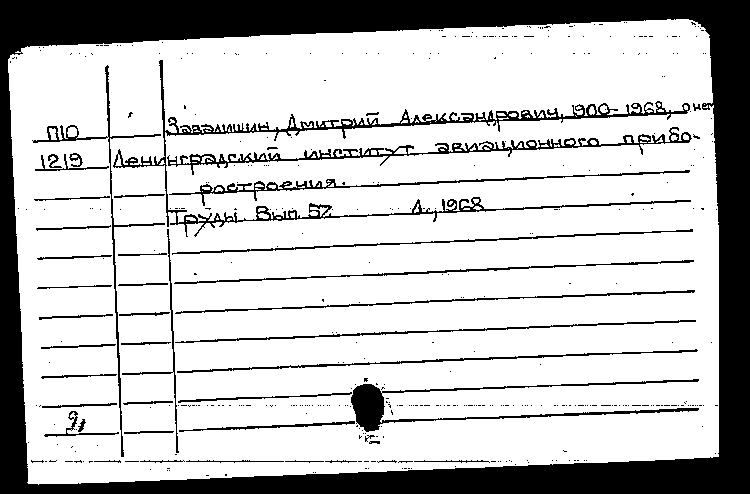 П10 Завалишин, Дмитрий Александрович, 1900-1968, о нем
1219 Ленинградский институт авиационного прибо-
ростроения.
Труды Вып. 57 Л., 1968